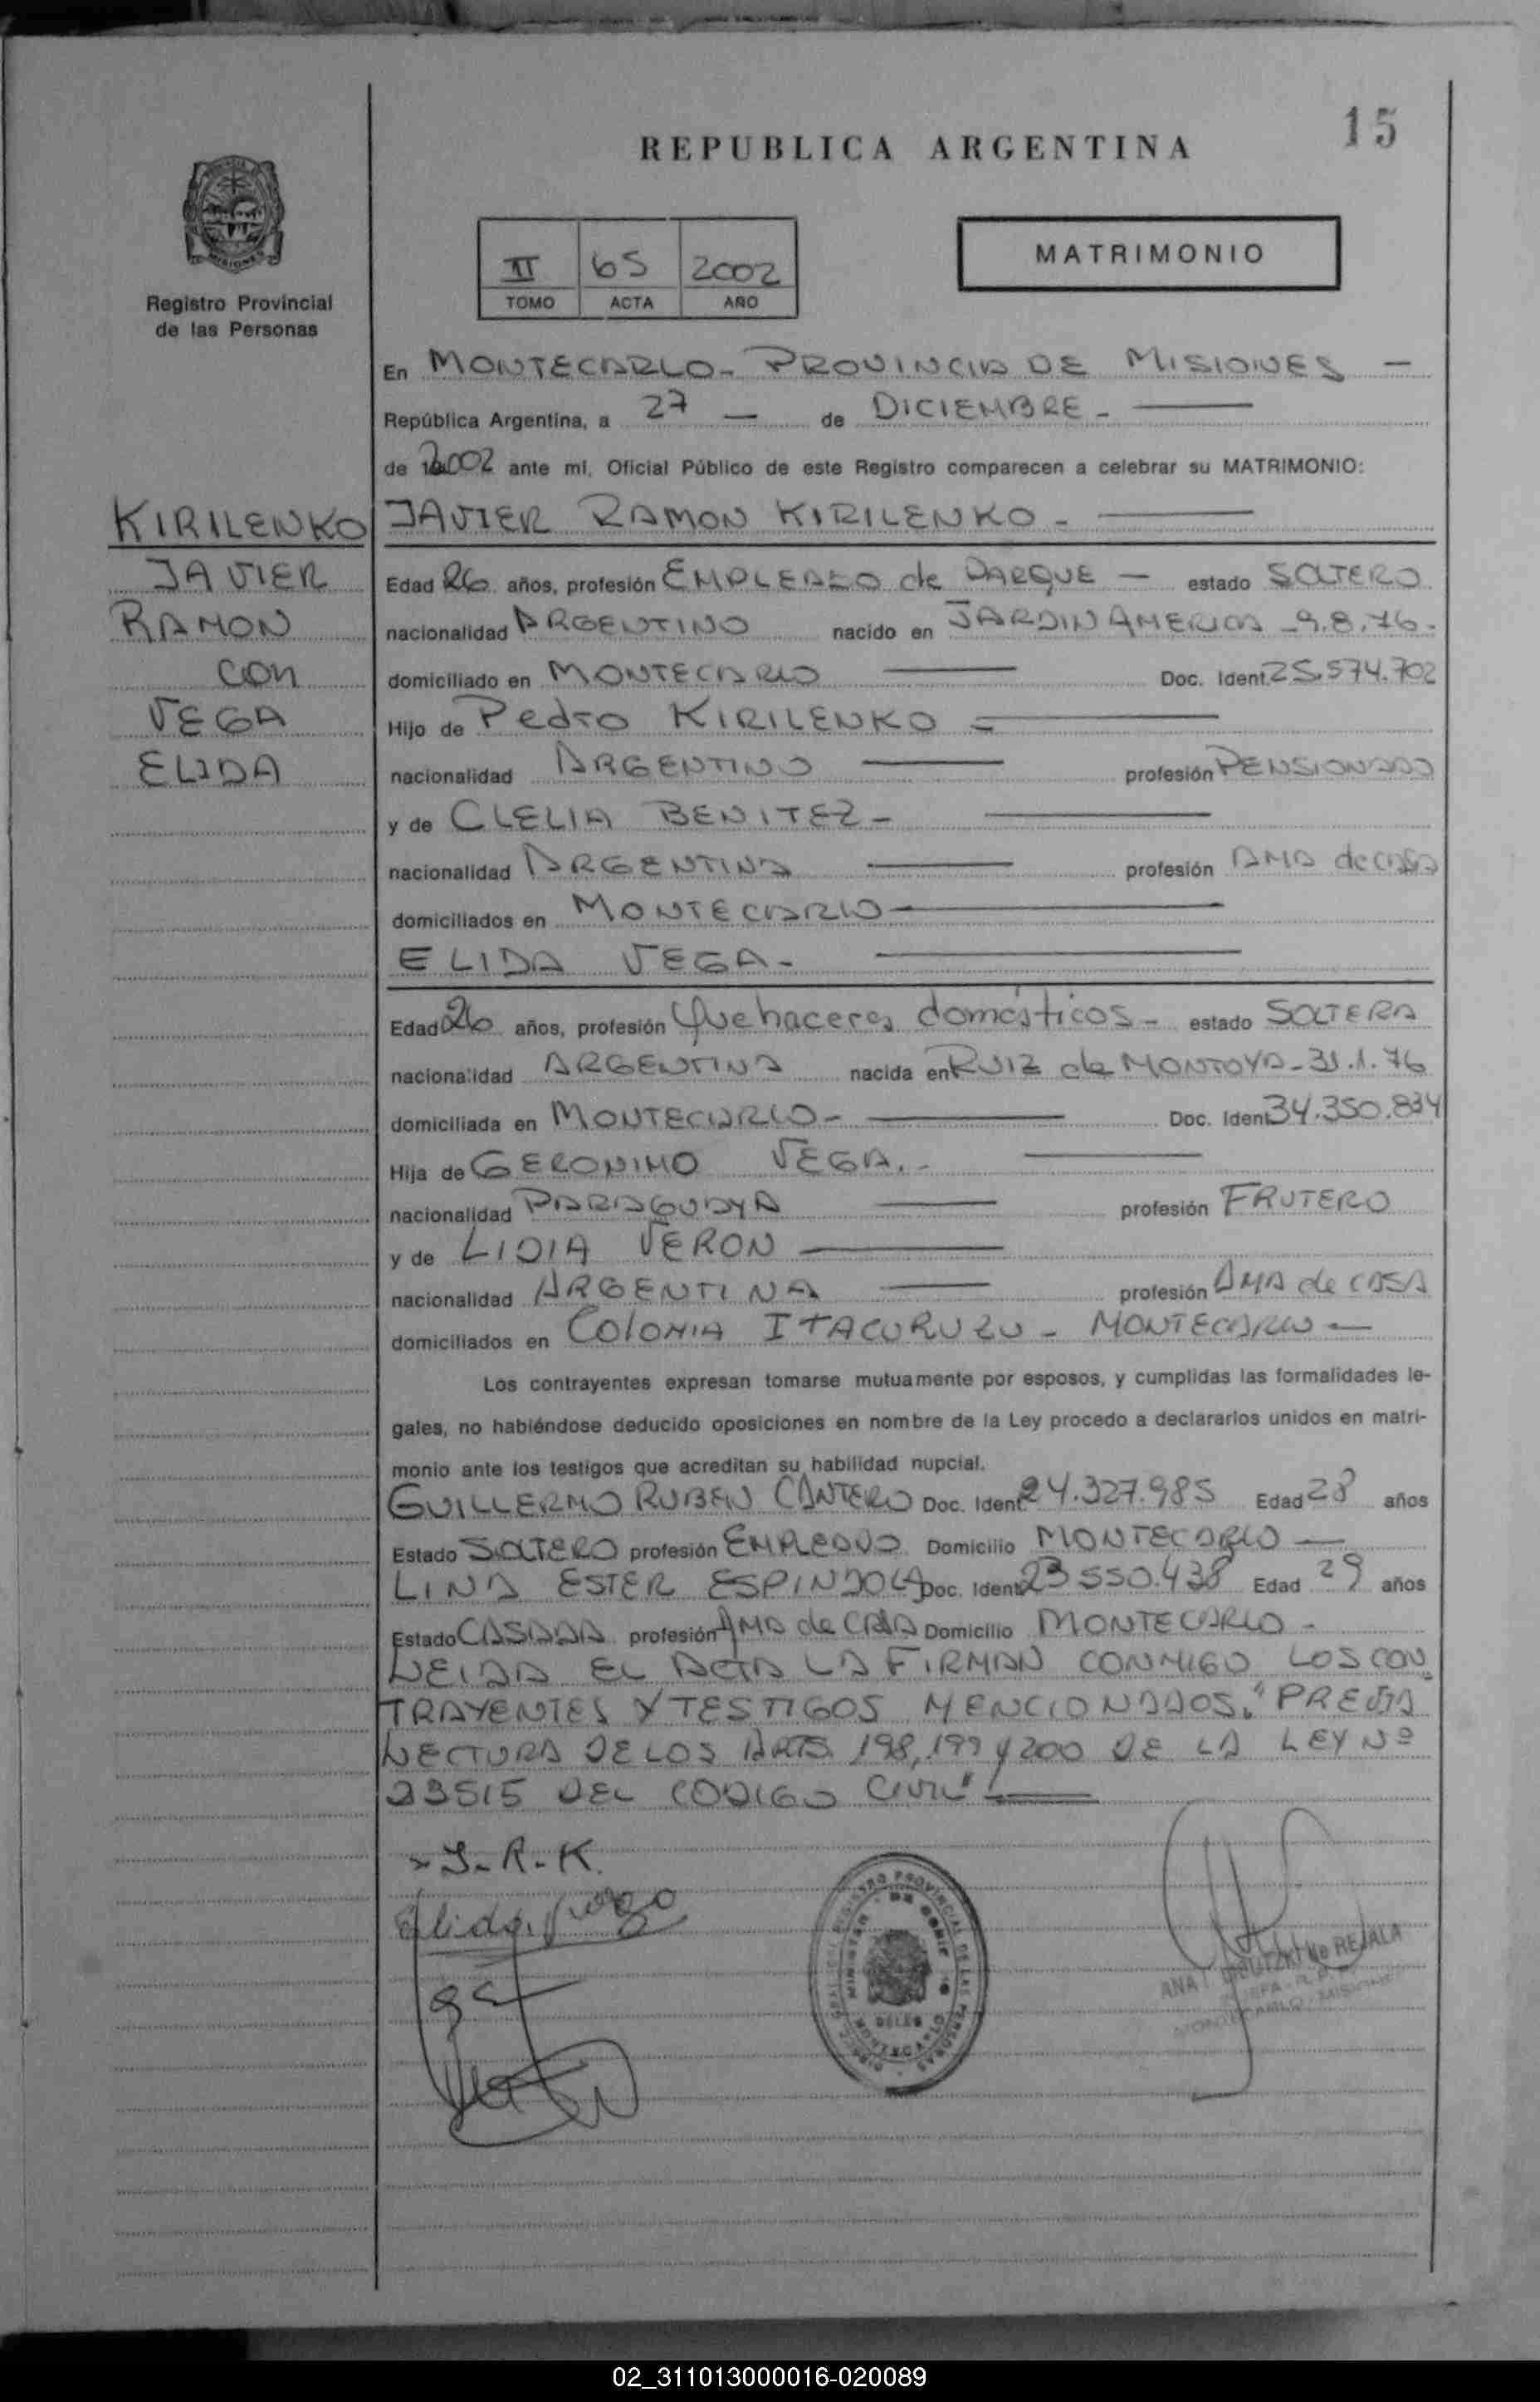 15
REPUBLICA ARGENTINA
MISIONES
Registro Provincial
de las Personas
II 65 2002
TOMO ACTA AÑO
MATRIMONIO
En MONTECARLO - PROVINCIA DE MISIONES —
República Argentina, a 27 — de DICIEMBRE - —
de 2002 ante mí, Oficial Público de este Registro comparecen a celebrar su MATRIMONIO:
KIRILENKO
JAVIER
RAMON
con
VEGA
ELIDA
JAVIER RAMON KIRILENKO - —
Edad 26 años, profesión EMPLEADO de PARQUE — estado SOLTERO
nacionalidad ARGENTINO nacido en JARDIN AMERICA - 9.8.76 -
domiciliado en MONTECARLO — Doc. Ident. 25.574.702
Hijo de Pedro KIRILENKO - —
nacionalidad ARGENTINO — profesión PENSIONADO
y de CLELIA BENITEZ - —
nacionalidad ARGENTINA — profesión AMA de CASA
domiciliados en MONTECARLO —
ELIDA VEGA - —
Edad 26 años, profesión Quehaceres domésticos - estado SOLTERA
nacionalidad ARGENTINA nacida en RUIZ de MONTOYA - 31.1.76
domiciliada en MONTECARLO - — Doc. Ident. 34.350.834
Hija de GERONIMO VEGA. - —
nacionalidad PARAGUAYA — profesión FRUTERO
y de LIDIA VERON —
nacionalidad ARGENTINA — profesión AMA de CASA
domiciliados en COLONIA ITACURUZU - MONTECARLO —
Los contrayentes expresan tomarse mutuamente por esposos, y cumplidas las formalidades le-
gales, no habiéndose deducido oposiciones en nombre de la Ley procedo a declararlos unidos en matri-
monio ante los testigos que acreditan su habilidad nupcial.
GUILLERMO RUBEN CANTERO Doc. Ident. 24.327.985 Edad 28 años
Estado SOLTERO profesión EMPLEADO Domicilio MONTECARLO —
LINA ESTER ESPINDOLA Doc. Ident. 23550.438 Edad 29 años
Estado CASADA profesión AMA de CASA Domicilio MONTECARLO -
LEIDA EL ACTA LA FIRMAN CONMIGO LOS CON
TRAYENTES Y TESTIGOS MENCIONADOS. "PREVIA
LECTURA DE LOS ARTS. 198, 199 y 200 DE LA LEY Nº
23515 DEL CODIGO CIVIL" —
J-R-K.
Elida Vega
REGISTRO PROVINCIAL DE LAS PERSONAS
MONTECARLO
ANA de REJALA
MONTECARLO - MISIONES
02_311013000016-020089